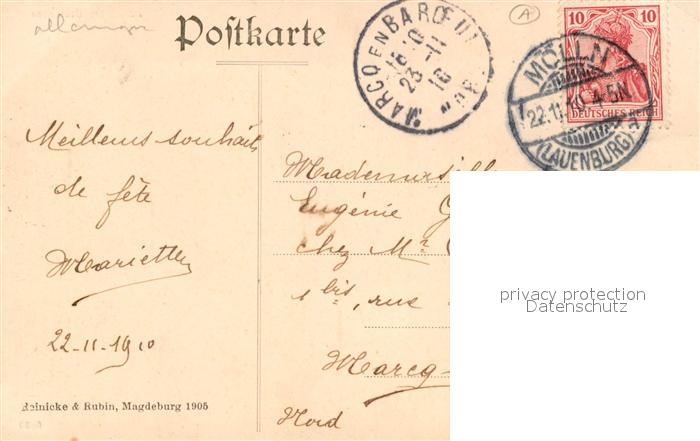 allemagne
Postkarte
MARCQ EN BARŒUL
16 10
23 - 11
10
A
10 10
DEUTSCHES REICH
MÖLLN
22.11.10. 4-5N
(LAUENBURG)
Meilleurs souhaits
de fête
Mariette
22-11-1910
Mademoiselle
Eugénie G
chez Mr
1 bis, rue
Marcq-
Nord
privacy protection
Datenschutz
Reinicke & Rubin, Magdeburg 1905